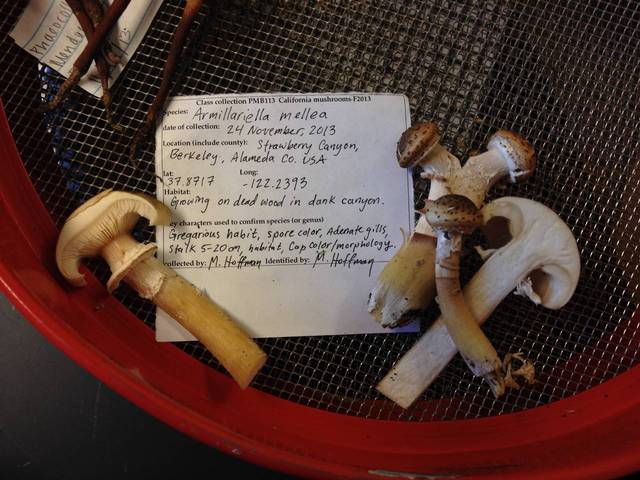 Phaeocoll
Mendo
/13
Class collection PMB113 California mushrooms-F2013
species: Armillariella mellea
date of collection: 24 November, 2013
Location (include county): Strawberry Canyon,
Berkeley, Alameda Co. USA
lat: Long:
37.8717 -122.2393
Habitat:
Growing on dead wood in dank canyon.
ey characters used to confirm species (or genus)
Gregarious habit, spore color, Adenate gills,
Stalk 5-20cm, habitat, Cap color/morphology.
collected by: M. Hoffman Identified by: M. Hoffman